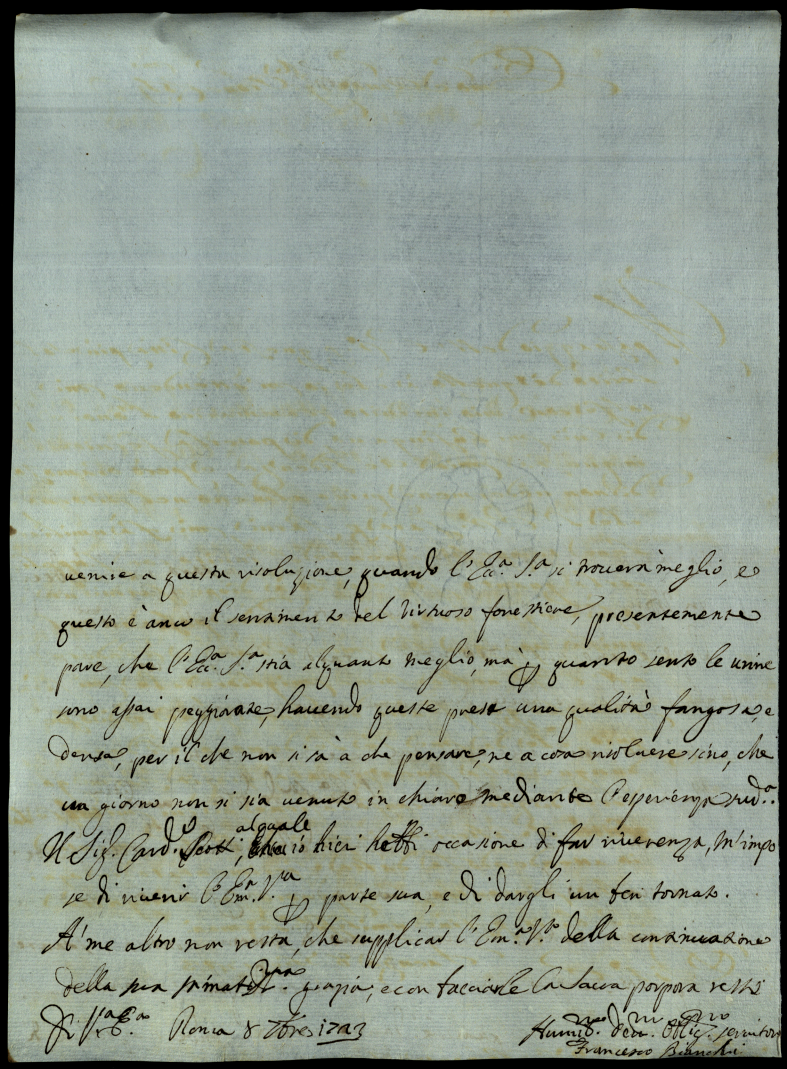 venire a questa risoluzione, quando l'Ecc.ª S.ª si trouerà meglio, e
questo è anco il sentimento del Virtuoso forestiere, presentemente
pare, che l'Ecc.ª S.ª stia alquanto meglio, mà p quanto sento le urine
sono assai peggiorate, hauendo queste preso una qualità fangosa, e
densa, per il che non si sà à che pensare, ne a cosa risoluere sino, che
un giorno non si sia uenuto in chiaro mediante l'esperienza sud.ª
Il Sig. Card.le Scotti, al quale io hieri hebbi occasione di far riuerenza, m'impo
se di riuerir l'Em.ª V.ª p parte sua, e di dargli un ben tornato.
A' me altro non resta, che supplicar l'Em.ª V.ª della continuazione
della sua grazia, e con facciarle la Sacra porpora resto
Di V.ª E.ª Roma 8 1723
Humil. Deu. Oblig. seruitore
Francesco Bianchi